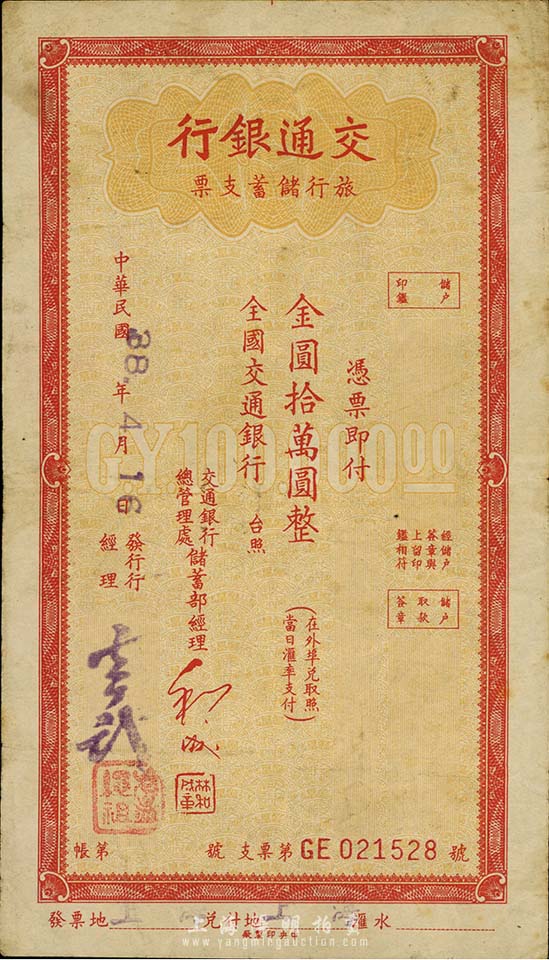 交通銀行
旅行儲蓄支票
儲戶
印鑑
憑票即付
金圓拾萬圓整
(在外埠兌取照
當日滙率支付)
全國交通銀行 台照
交通銀行
總管理處儲蓄部經理
林和成章
中華民國38.年4月16日
發行行
經理
GY100,00000
經儲戶
簽章與
上留印
鑑相符
儲戶
取款
簽章
帳第 號 支票第GE 021528 號
發票地 兌付地 滙水
中央印製廠
上海陽明拍賣
www.yangmingauction.com